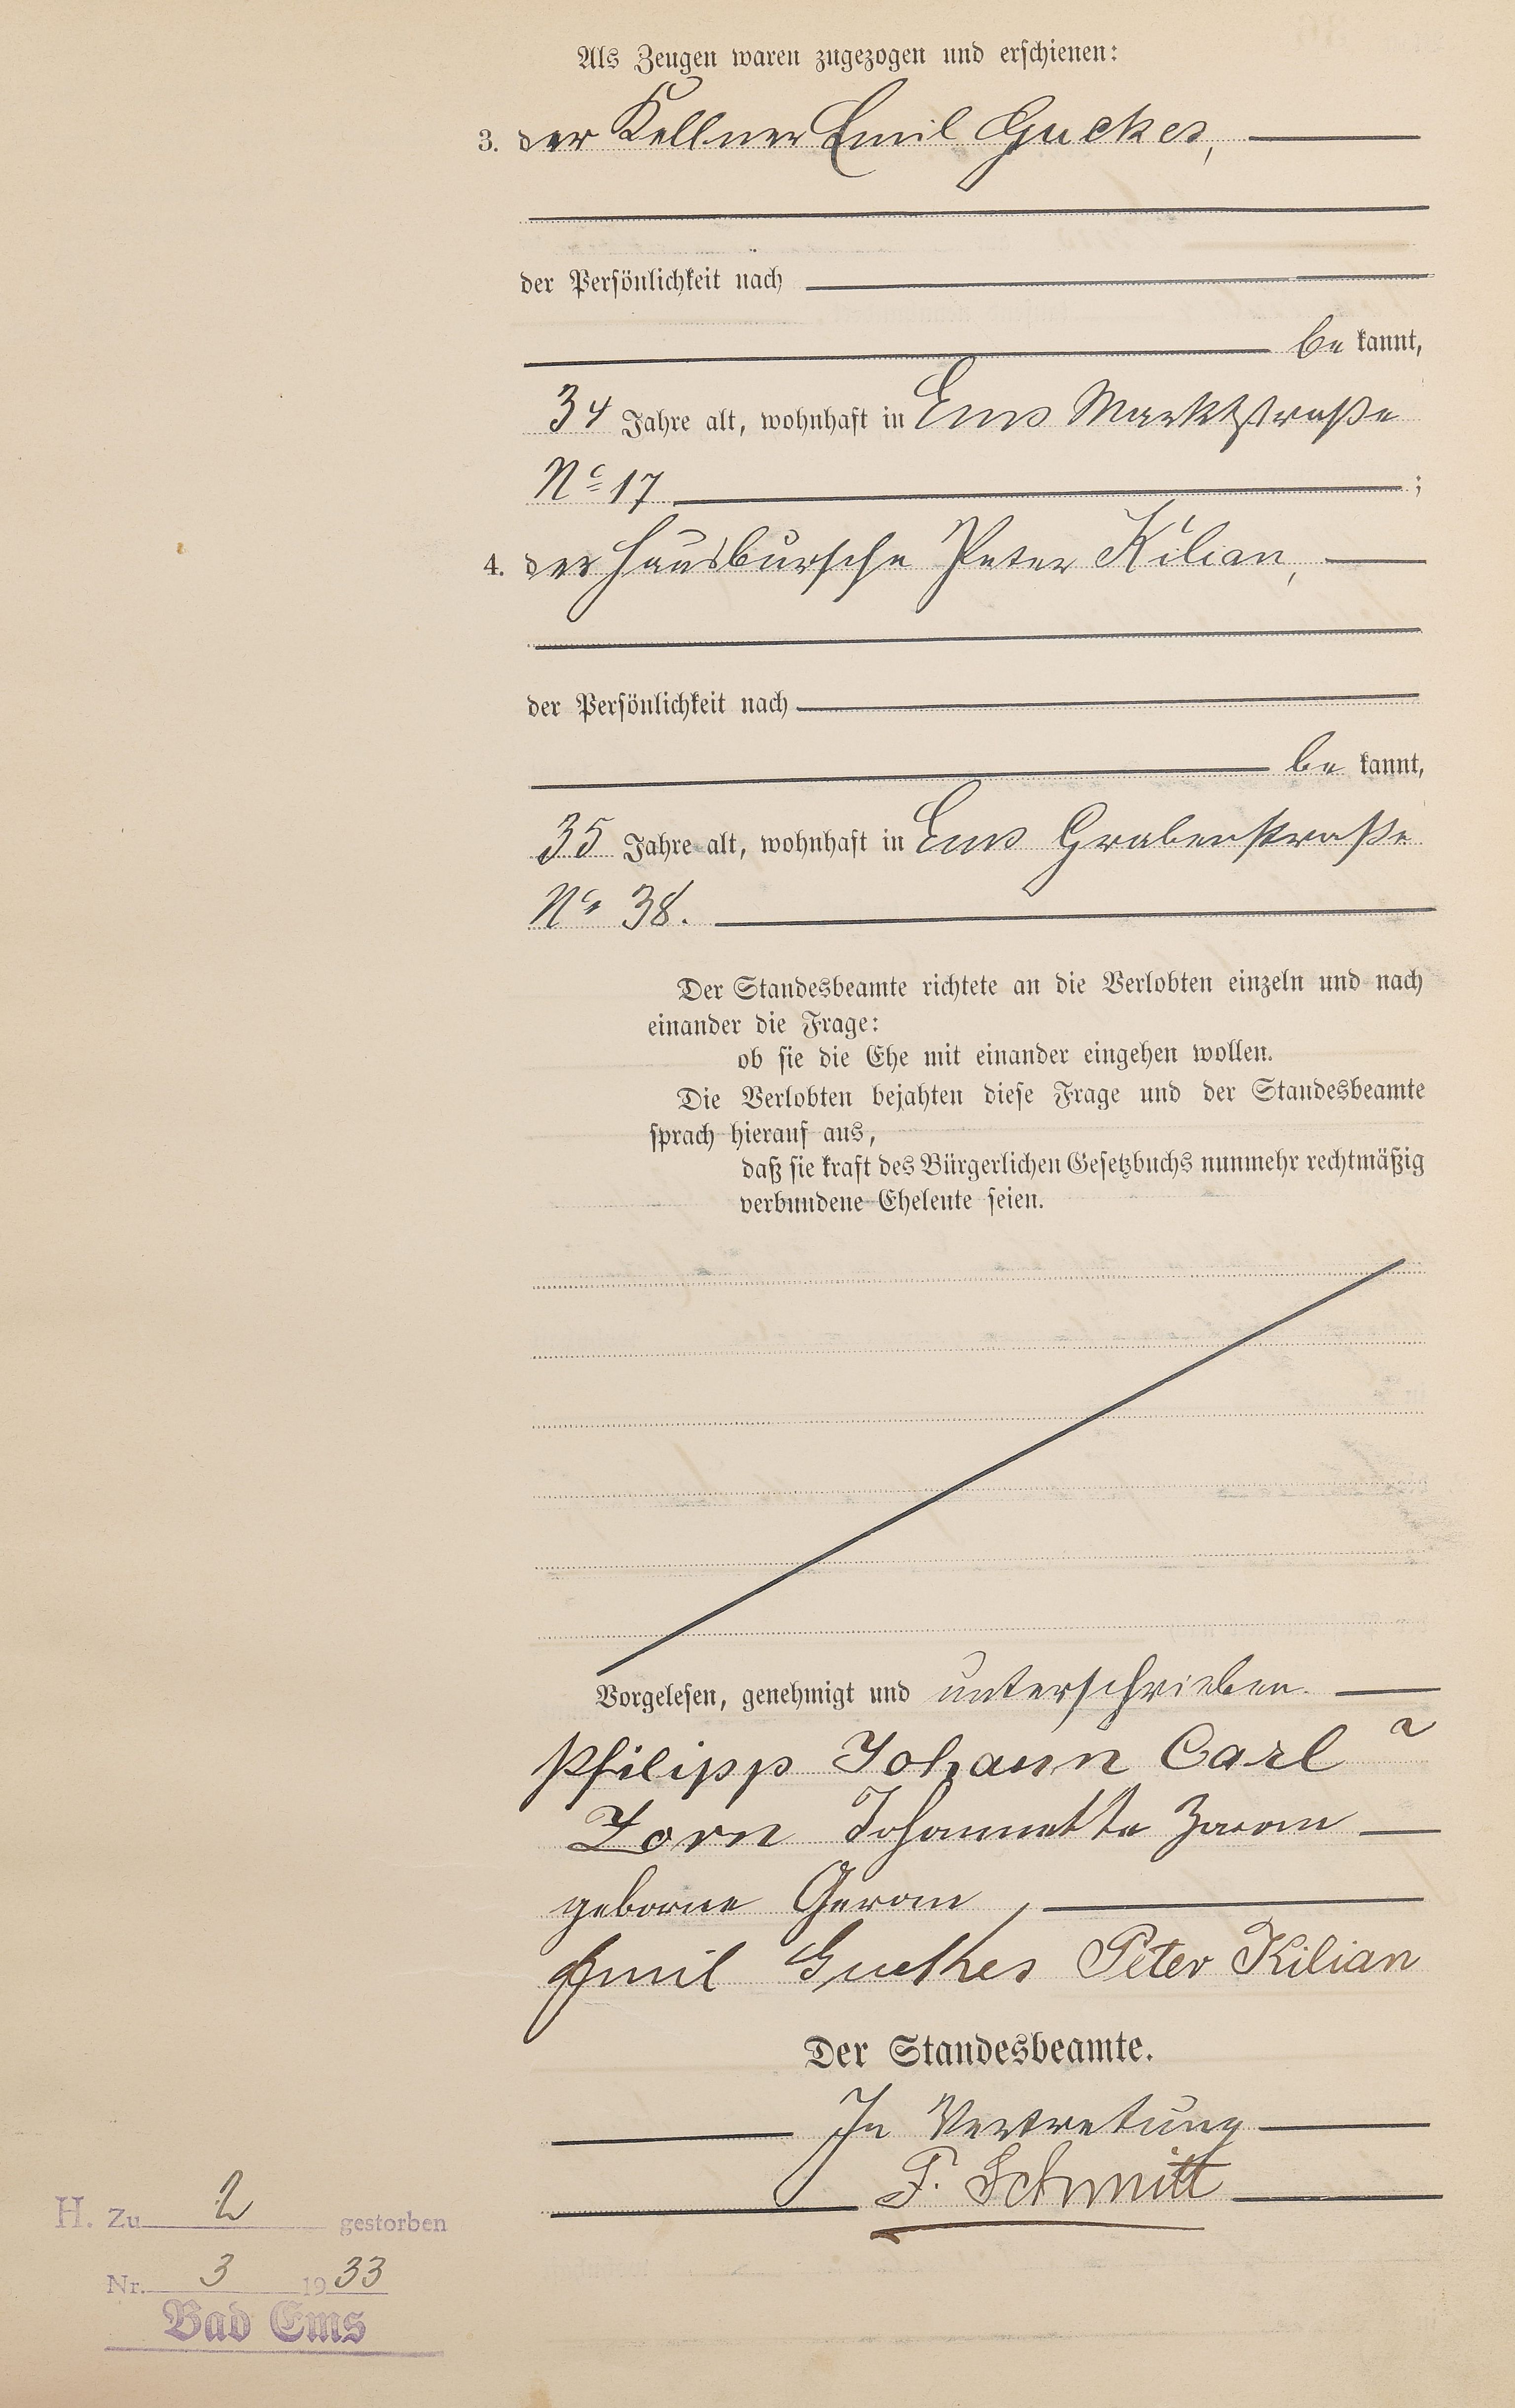 Als Zeugen waren zugezogen und erschienen:
3. der Kellner Emil Guckes,
der Persönlichkeit nach
be kannt,
34 Jahre alt, wohnhaft in Ems Marktstraße
No 17 ;
4. der Hausbursche Peter Kilian,
der Persönlichkeit nach
be kannt,
35 Jahre alt, wohnhaft in Ems Grabenstraße
No 38.
Der Standesbeamte richtete an die Verlobten einzeln und nach
einander die Frage:
ob sie die Ehe mit einander eingehen wollen.
Die Verlobten bejahten diese Frage und der Standesbeamte
sprach hierauf aus,
daß sie kraft des Bürgerlichen Gesetzbuchs nunmehr rechtmäßig
verbundene Eheleute seien.
Vorgelesen, genehmigt und unterschrieben.
Philipp Johann Carl
Zorn Johannette Zorn
geborne
Emil Guckes Peter Kilian
Der Standesbeamte.
In Vertretung
F. Schmitt
H. Zu 2 gestorben
Nr. 3 1933
Bad Ems